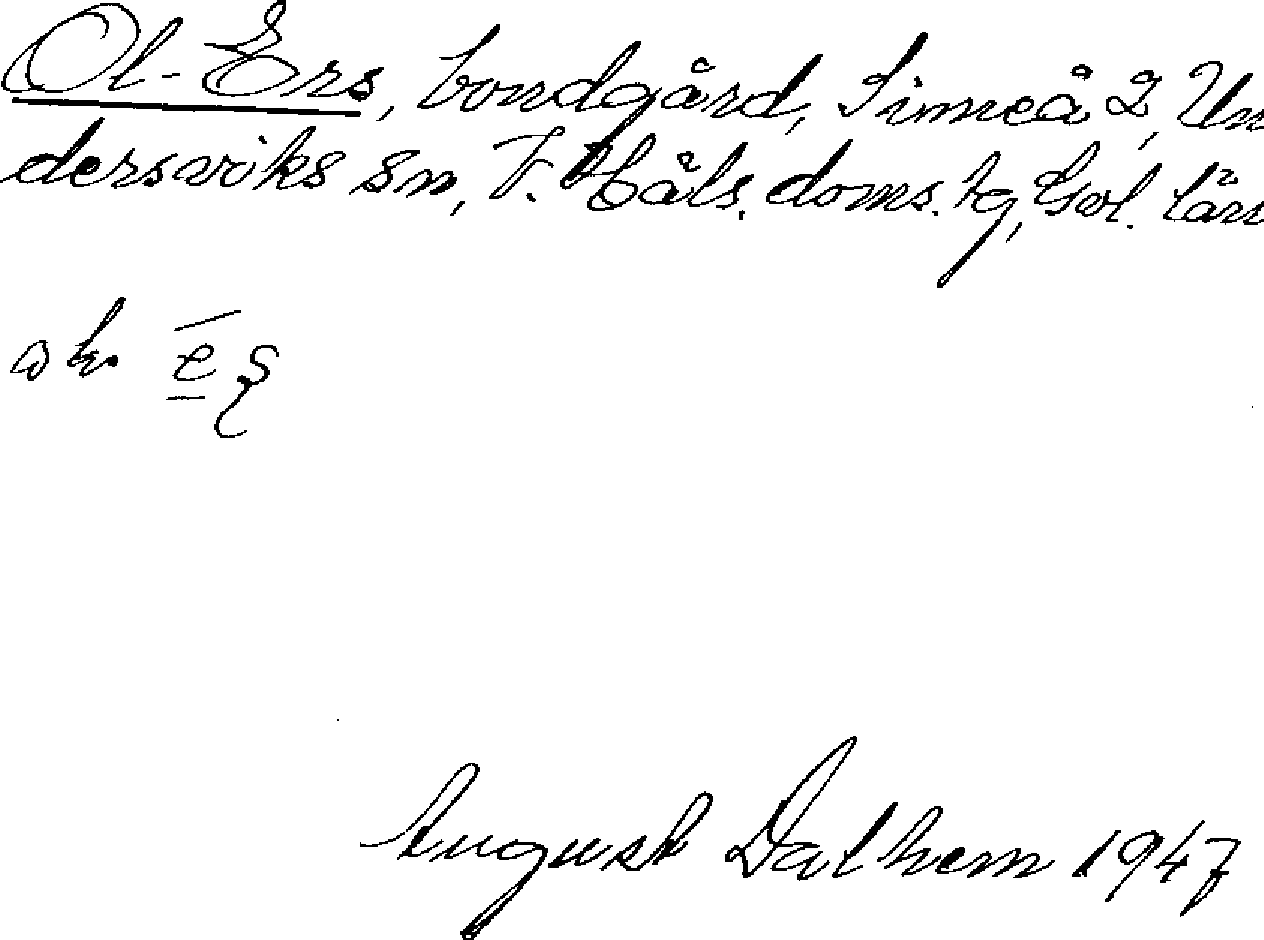 Ol-Ers, bondgård, Simeå 2, Un
dersviks sn, V. Häls. doms. tg, Gvl. län
August Dalhem 1947